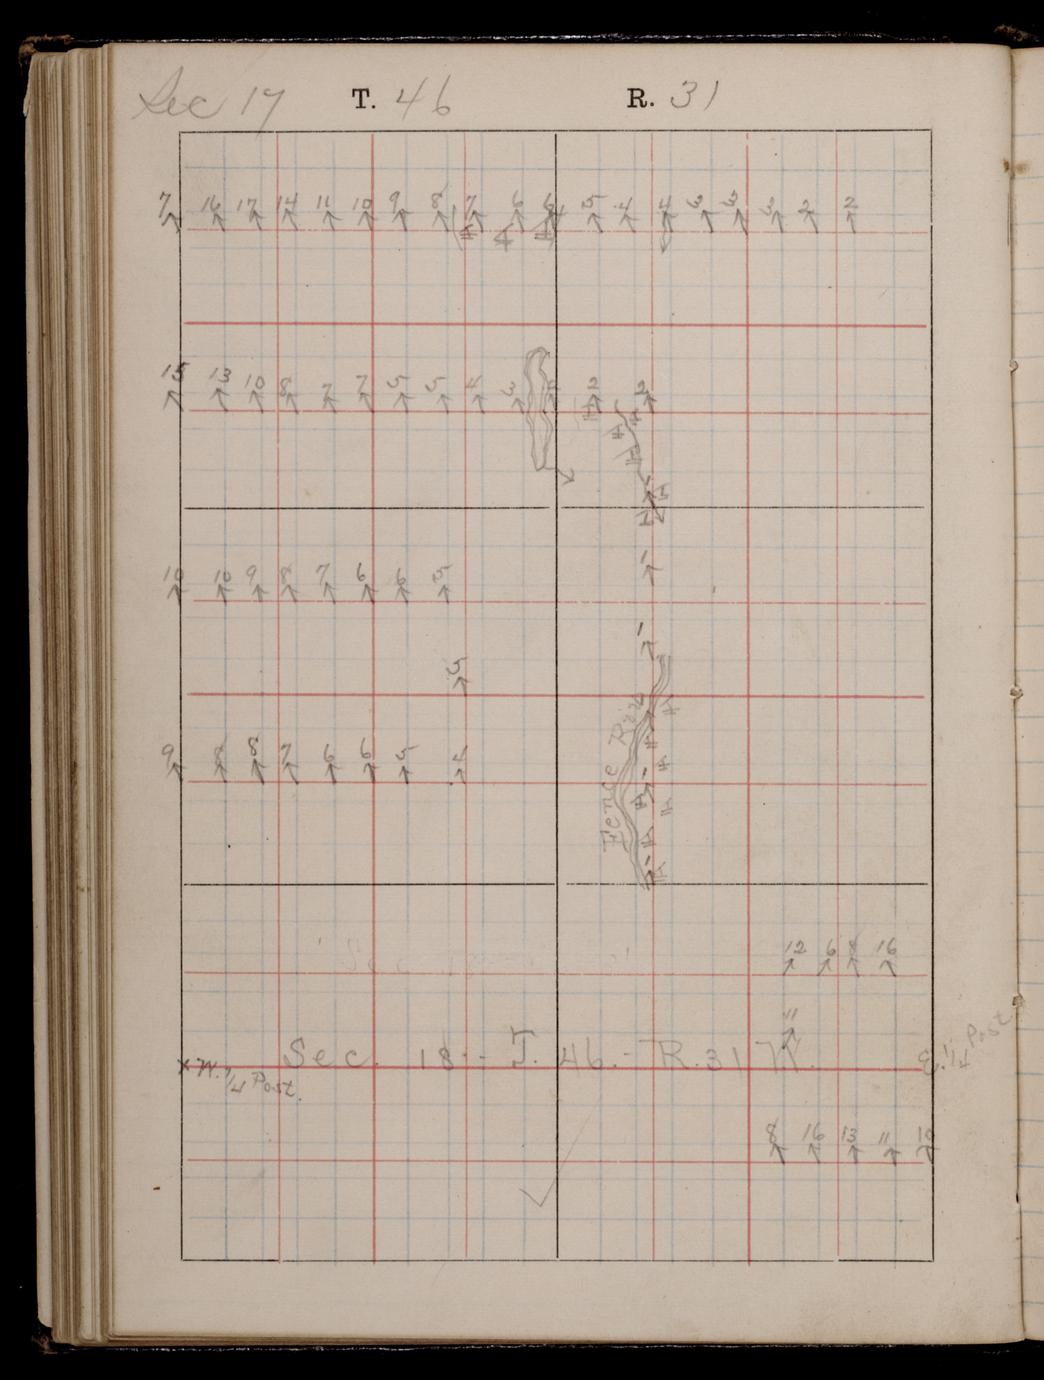 Sec 17 T. 46 R. 31
7 16 17 14 11 10 9 8 7 6 6 5 4 4 3 3 3 2 2
15 13 10 8 7 7 5 5 4 3 2 2 2
10 10 9 8 7 6 6 5 1
5 1
9 8 8 7 6 6 5 4
Fence River
12 6 8 16
11
Sec. 18 - T. 46. - R. 31 W.
W. 1/4 Post.
E. 1/4 Post
8 16 13 11 10